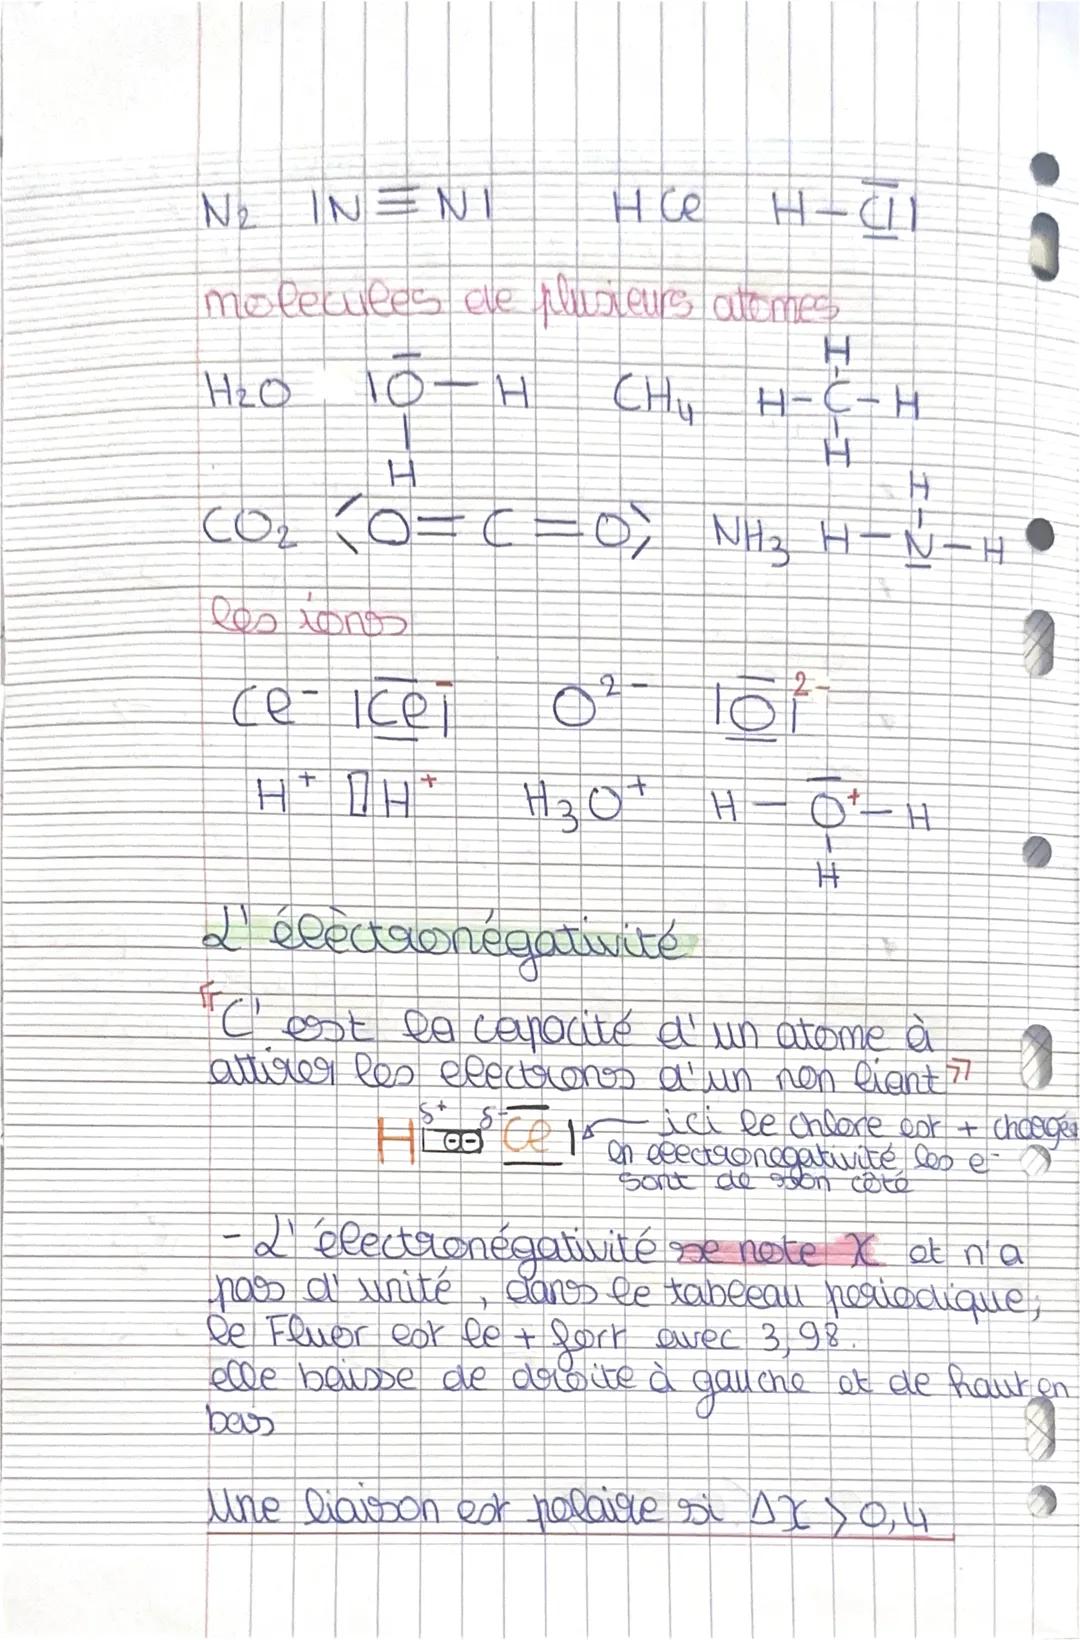 N₂ |N≡N| HCl H-Cl|
molecules de plusieurs atomes
H
H₂O |O-H CH₄ H-C-H
H H
H
CO₂ ⟨O=C=O⟩ NH₃ H-N-H
les ions
Cl⁻ |Cl|⁻ O²⁻ |O|²⁻
H⁺ ▯H⁺ H₃O⁺ H-O⁺-H
H
L'élèctronégativité
"C'est la capacité d'un atome à
attirer les electrons d'un non liant"
H δ⁺ ⊖⊖ δ⁻ Cl| ici le chlore est + chargé
en électronegativité les e⁻
sont de son côté
- L'électronégativité se note χ et n'a
pas d'unité, dans le tableau periodique,
le Fluor est le + fort avec 3,98.
elle baisse de droite à gauche et de haut en
bas
Une liaison est polaire si Δχ > 0,4